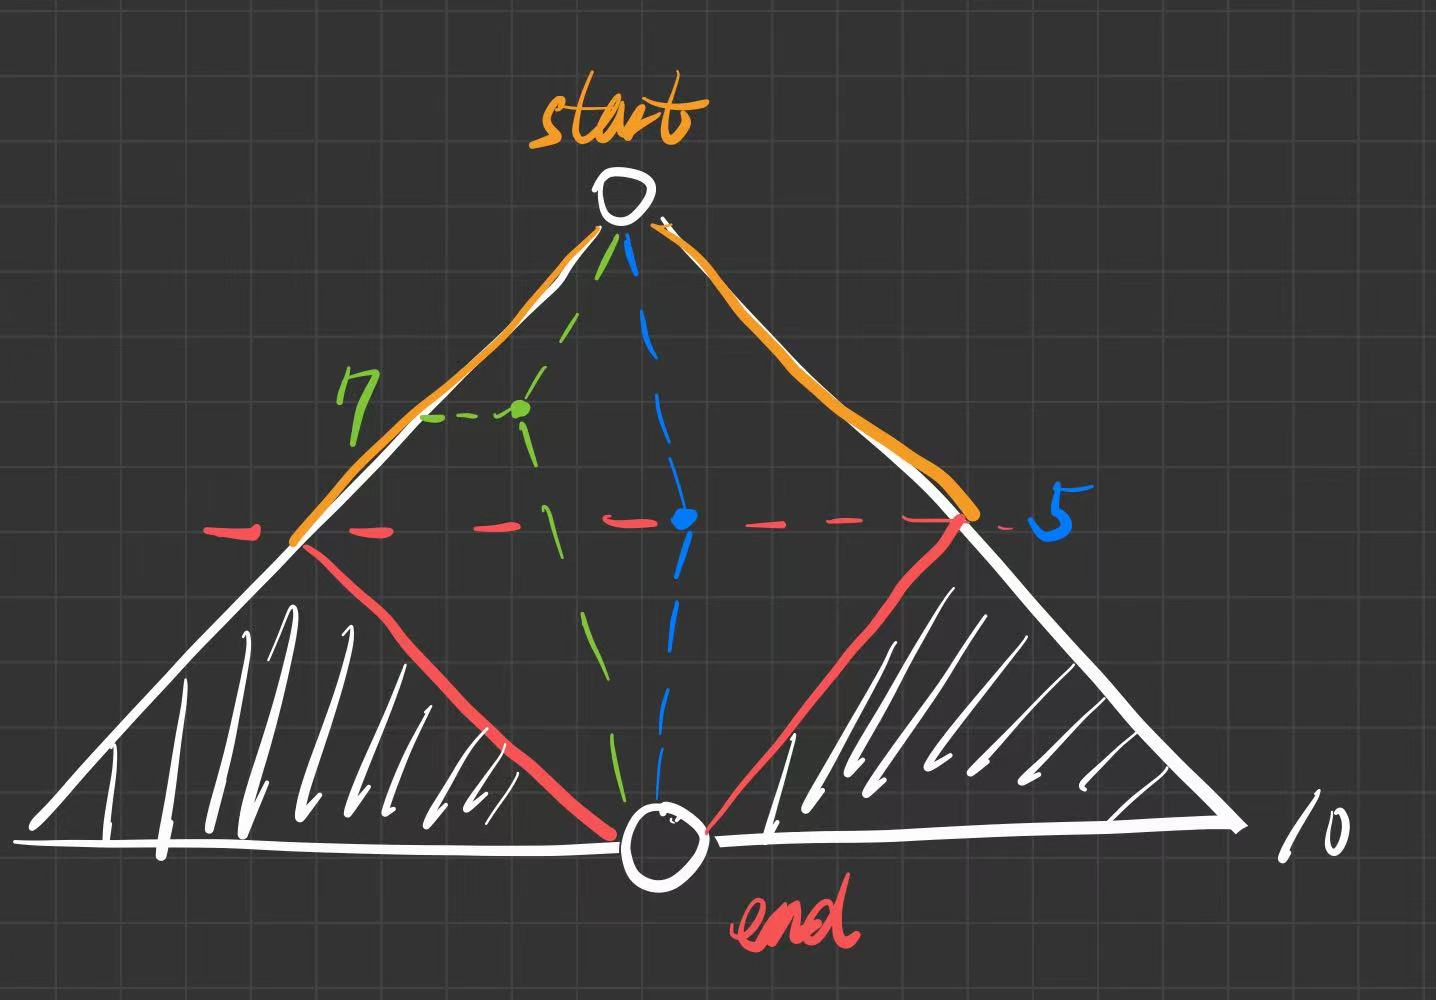 start
7
5
10
end